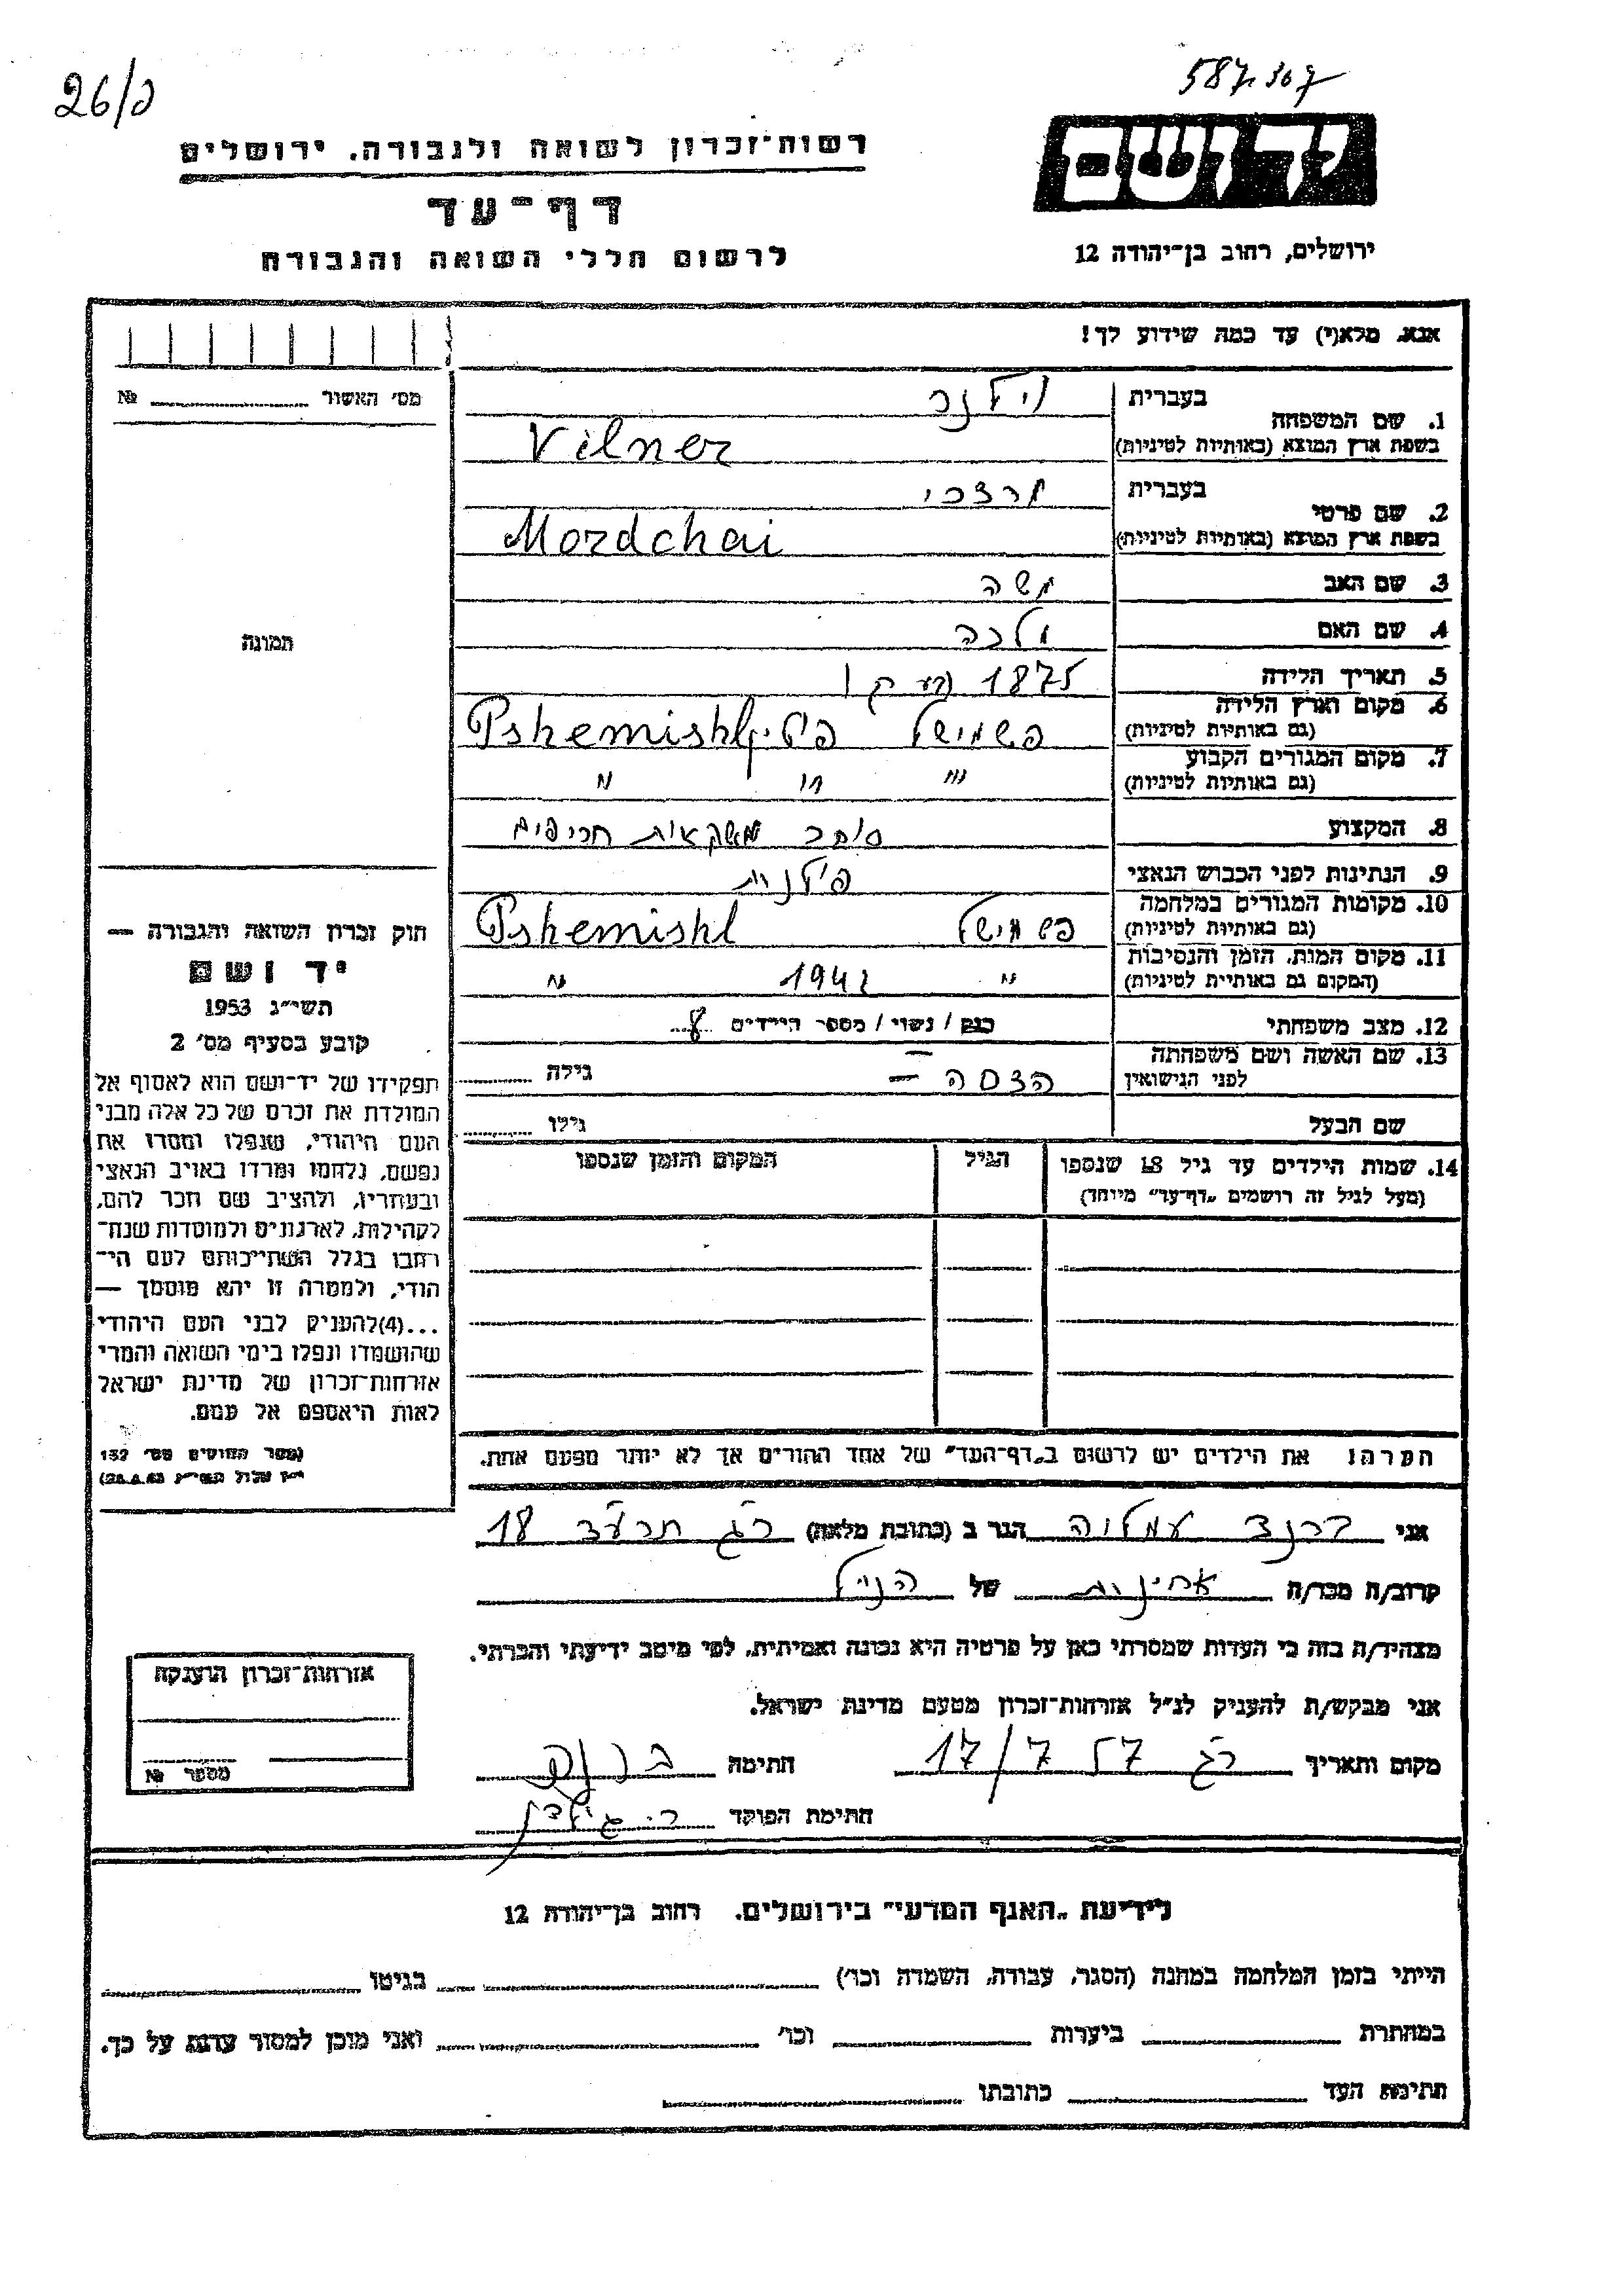 26/כ
587.307
יד ושם
רשות־זכרון לשואה ולגבורה. ירושלים
דף־עד
לרשום חללי השואה והגבורה
ירושלים, רחוב בן־יהודה 12
אנא. מלא(י) עד כמה שידוע לך!
מס׳ האשור №
תמונה
1. שם המשפחה בעברית וילנר
בשפת ארץ המוצא (באותיות לטיניות) Vilner
2. שם פרטי בעברית מרדכי
בשפת ארץ המוצא (באותיות לטיניות) Mordchai
3. שם האב משה
4. שם האם מלכה
5. תאריך הלידה 1875
6. מקום וארץ הלידה
(גם באותיות לטיניות) פשמישל פולין Pshemishl
7. מקום המגורים הקבוע
(גם באותיות לטיניות) " " "
8. המקצוע סוחר משקאות חריפים
9. הנתינות לפני הכבוש הנאצי פולנית
10. מקומות המגורים במלחמה
(גם באותיות לטיניות) פשמישל Pshemishl
11. מקום המות, הזמן והנסיבות
(המקום גם באותיות לטיניות) " 1942 "
12. מצב משפחתי רווק / נשוי / מספר הילדים 8
13. שם האשה ושם משפחתה
לפני הנישואין הדסה — גילה
שם הבעל גילו
14. שמות הילדים עד גיל 18 שנספו הגיל המקום והזמן שנספו
(מעל לגיל זה רושמים „דף־עד" מיוחד)
הערה: את הילדים יש לרשום ב„דף־העד" של אחד ההורים אך לא יותר מפעם אחת.
חוק זכרון השואה והגבורה —
יד ושם
תשי״ג 1953
קובע בסעיף מס׳ 2
תפקידו של יד־ושם הוא לאסוף אל
המולדת את זכרם של כל אלה מבני
העם היהודי, שנפלו ומסרו את
נפשם, נלחמו ומרדו באויב הנאצי
ובעוזריו, ולהציב שם וזכר להם,
לקהילות, לארגונים ולמוסדות שנח־
רבו בגלל השתייכותם לעם הי־
הודי, ולמטרה זו יהא מוסמך —
...(4) להעניק לבני העם היהודי
שהושמדו ונפלו בימי השואה והמרי
אזרחות־זכרון של מדינת ישראל
לאות היאספם אל עמם.
(ספר החוקים מס׳ 132
אני עמליה הגר ב (כתובת מלאה) רג 18
קרוב/ה מכר/ה אחינית של הנ״ל
מצהיר/ה בזה כי העדות שמסרתי כאן על פרטיה היא נכונה ואמיתית, לפי מיטב ידיעתי והכרתי.
אני מבקש/ת להעניק לנ״ל אזרחות־זכרון מטעם מדינת ישראל.
מקום ותאריך רג 17/7 57 חתימה
חתימת הפוקד
אזרחות־זכרון הוענקה
מספר №
לידיעת „האגף המדעי" בירושלים. רחוב בן־יהודה 12
הייתי בזמן המלחמה במחנה (הסגר, עבודה, השמדה וכו׳) בגיטו
במחתרת ביערות וכו׳ ואני מוכן למסור עדות על כך.
חתימת העד כתובתו